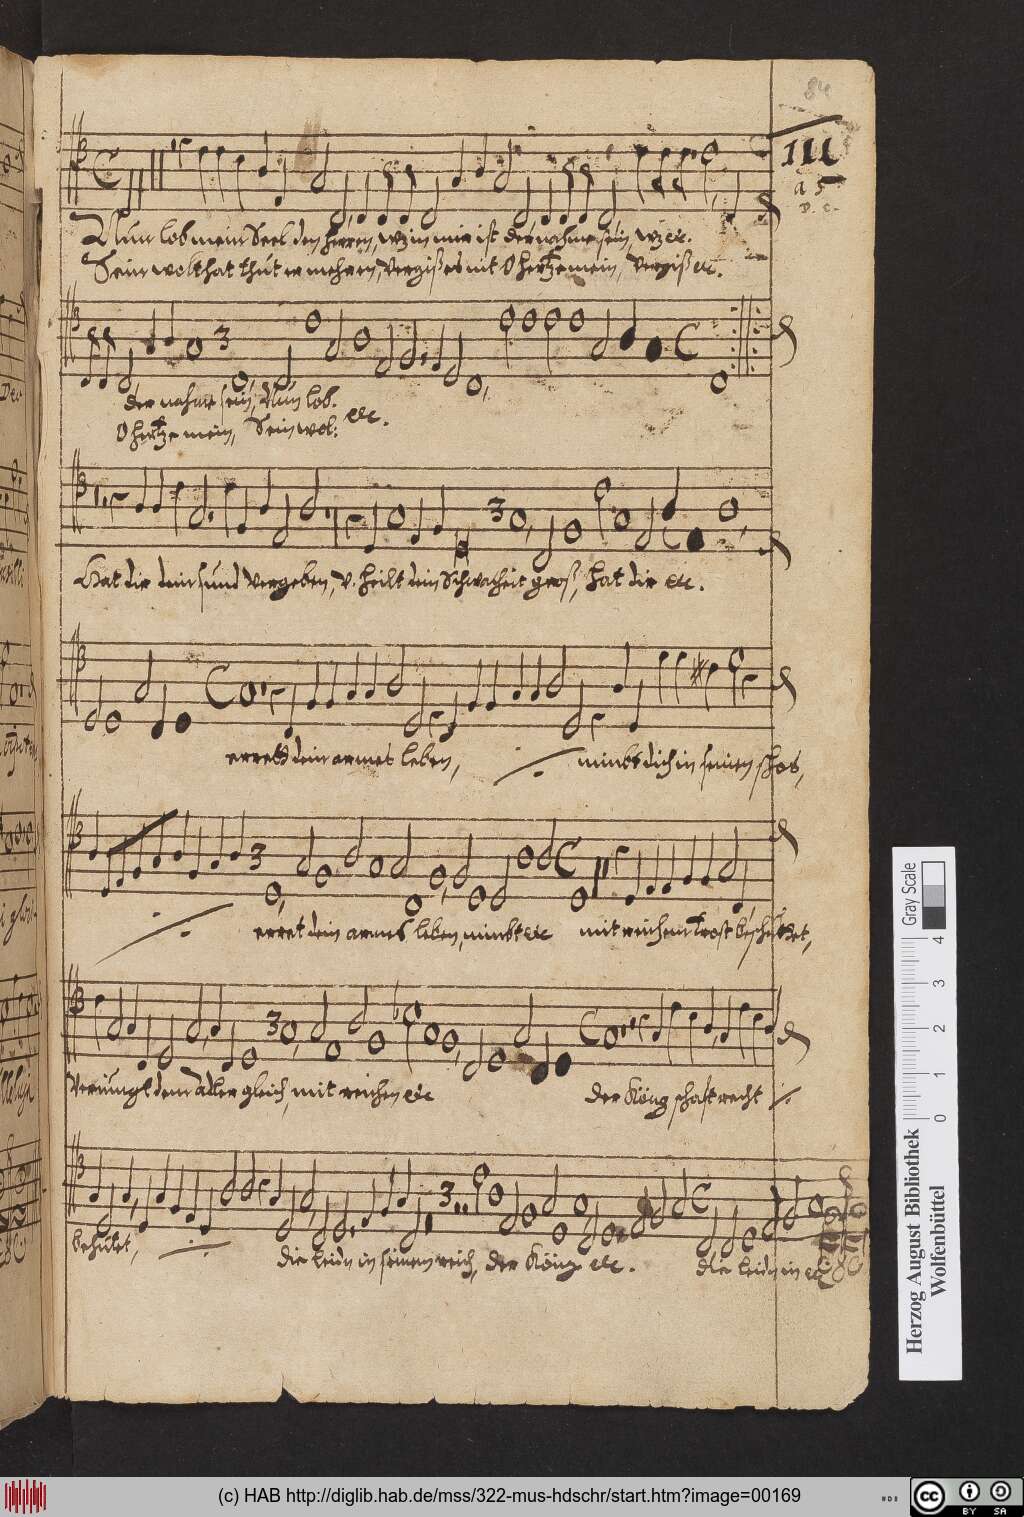 84
III
a 5
Nun lob mein Seel den herren, wz in mir ist der nahme sein, wz etc.
Sein wolthat thut er mehren, Vergiß es nit O hertze mein, Vergiß etc.
der nahme sein, Nun lob.
O hertze mein, Sein wol: etc.
Hat dir dein sünd vergeben, v. heilt dein Schwacheit groß, hat dir etc.
errett dein armes leben, nimbt dich in seinen schos,
erret dein armes leben, nimbt etc mit reichem trost beschüttet,
Verjüngt dem Adler gleich, mit reichen etc der König schaft recht
behütet, die leidn in seinem reich, der König etc. die leidn in etc
Gray Scale
0 1 2 3 4
Herzog August Bibliothek
Wolfenbüttel
(c) HAB http://diglib.hab.de/mss/322-mus-hdschr/start.htm?image=00169
cc BY SA